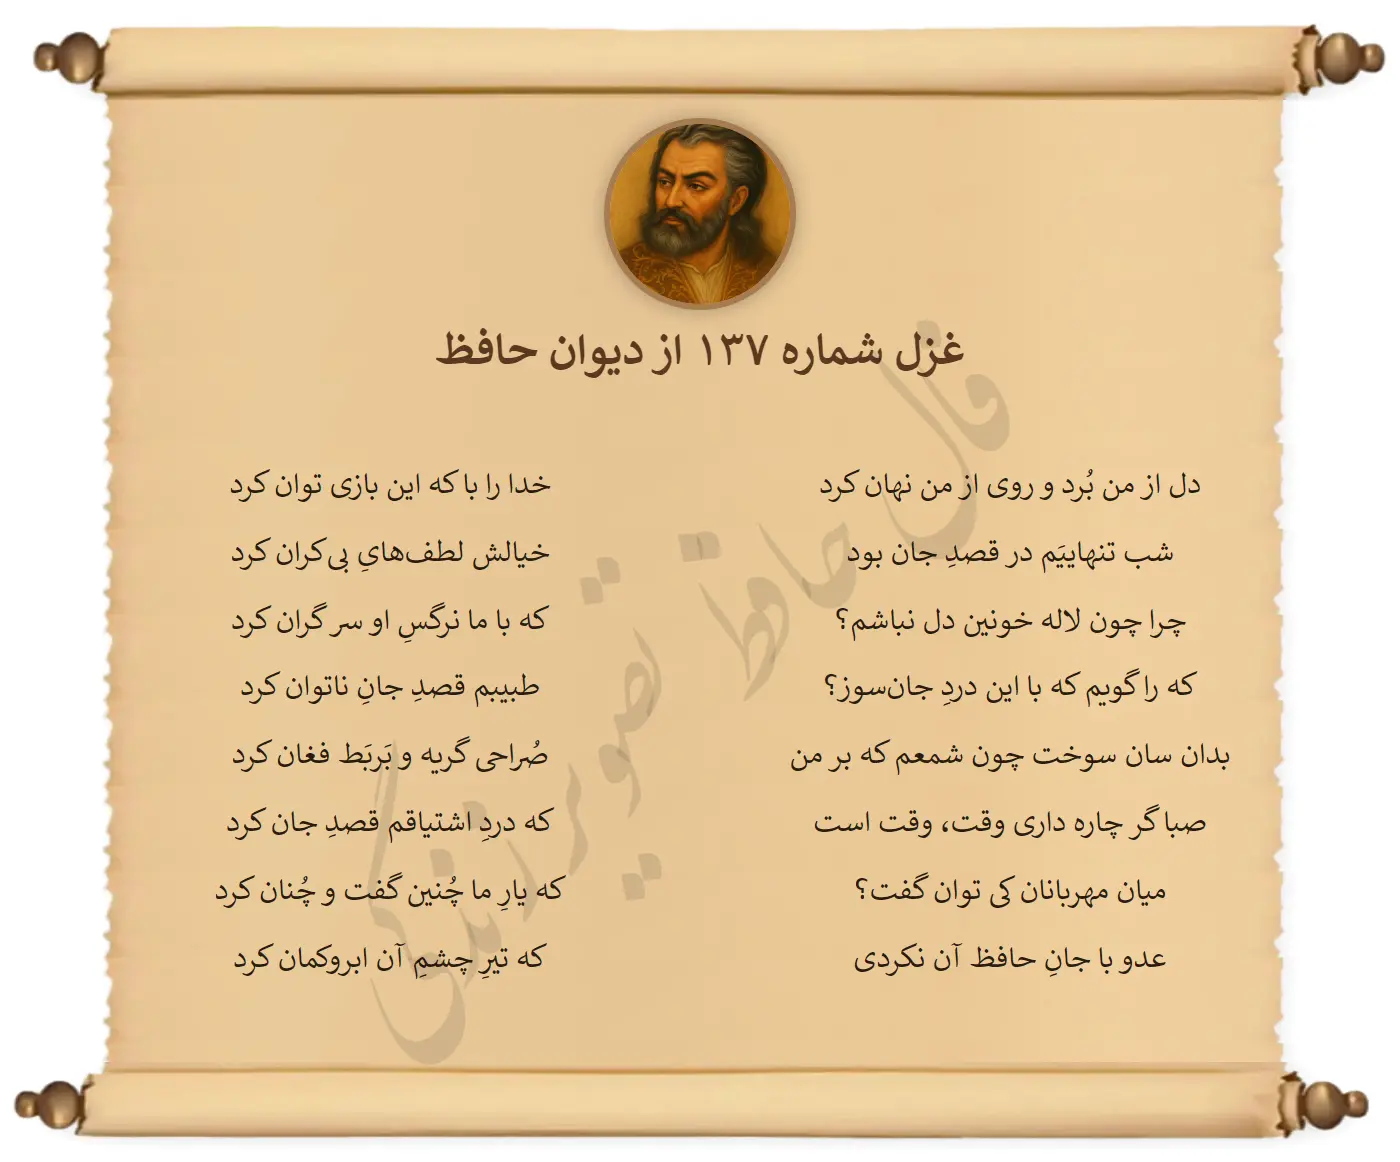 غزل شماره ۱۳۷ از دیوان حافظ
دل از من بُرد و روی از من نهان کرد
خدا را با که این بازی توان کرد
شب تنهاییَم در قصدِ جان بود
خیالش لطف‌هایِ بی‌کران کرد
چرا چون لاله خونین دل نباشم؟
که با ما نرگسِ او سر گران کرد
که را گویم که با این دردِ جان‌سوز؟
طبیبم قصدِ جانِ ناتوان کرد
بدان سان سوخت چون شمعم که بر من
صُراحی گریه و بَربَط فغان کرد
صبا گر چاره داری وقت، وقت است
که دردِ اشتیاقم قصدِ جان کرد
میان مهربانان کی توان گفت؟
که یارِ ما چُنین گفت و چُنان کرد
عدو با جانِ حافظ آن نکردی
که تیرِ چشمِ آن ابروکمان کرد
فال حافظ تصویر زندگی